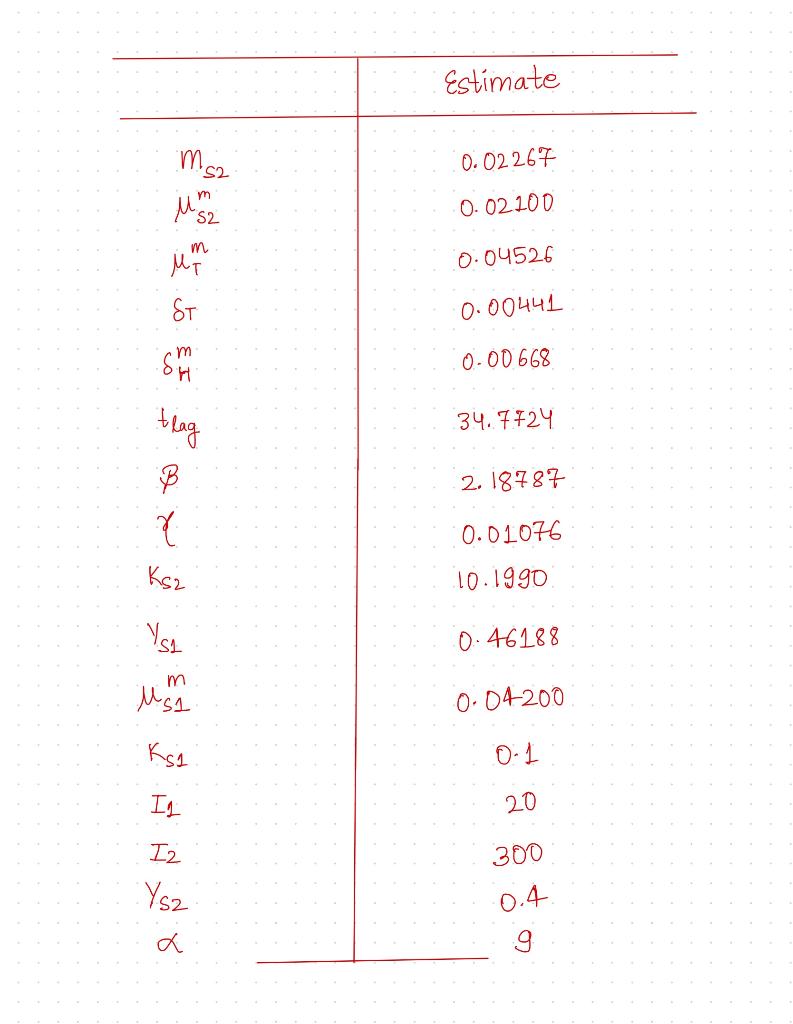 Estimate
m_S2 0.02267
μ^m_S2 0.02100
μ^m_T 0.04526
δ_T 0.00441
δ^m_H 0.00668
t_lag 34.7724
β 2.18787
γ 0.01076
K_S2 10.1990
Y_S1 0.46188
μ^m_S1 0.04200
K_S1 0.1
I_1 20
I_2 300
Y_S2 0.4
α 9